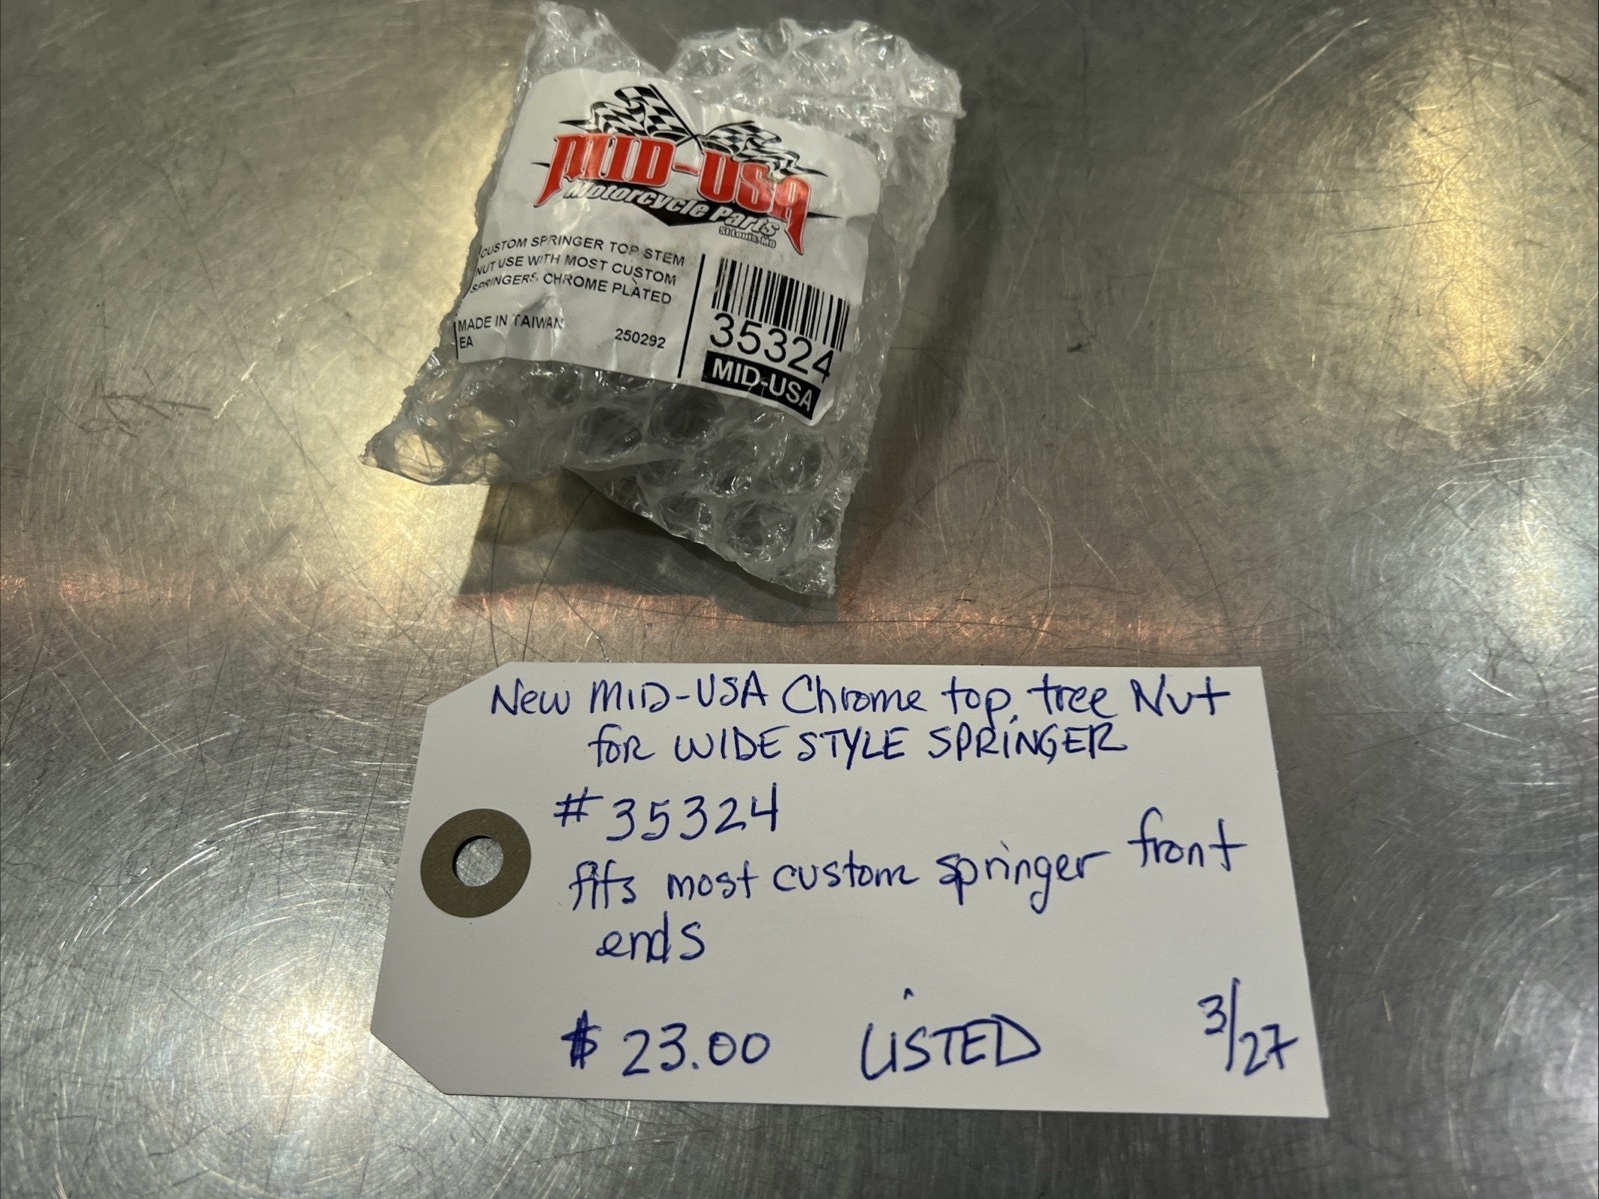 MID-USA
Motorcycle Parts
St. Louis, MO
CUSTOM SPRINGER TOP STEM
NUT USE WITH MOST CUSTOM
SPRINGERS CHROME PLATED
MADE IN TAIWAN
EA
250292
35324
MID-USA
New MID-USA Chrome top tree Nut
for WIDE STYLE SPRINGER
#35324
fits most custom springer front
ends
$23.00 LiSTED 3/27